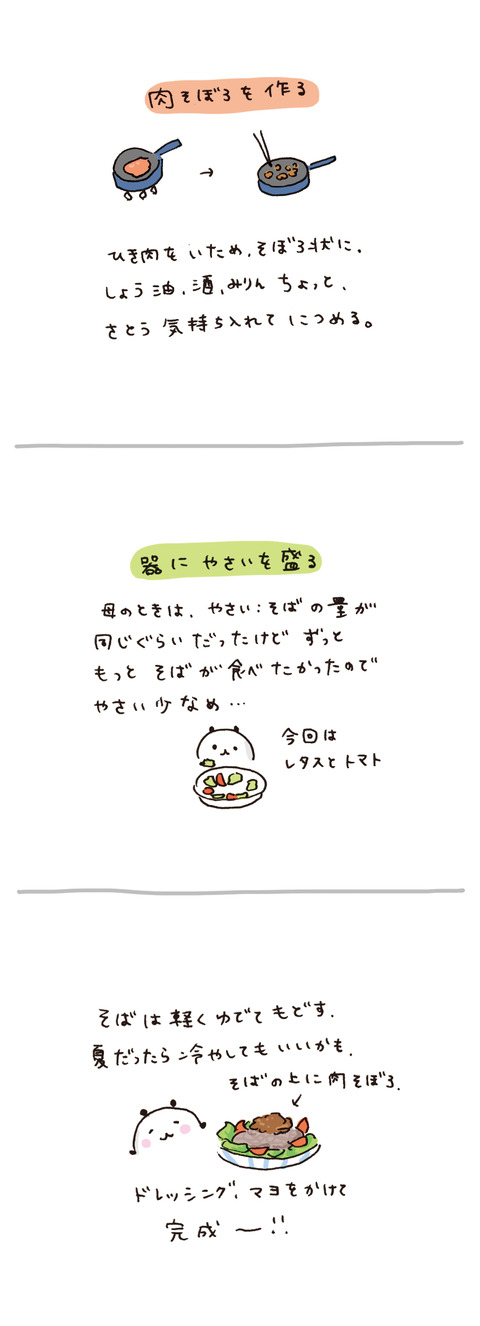 肉そぼろを作る
→
ひき肉をいため、そぼろ状に、
しょう油、酒、みりんちょっと、
さとう気持ち入れてにつめる。
器にやさいを盛る
母のときは、やさい:そばの量が
同じぐらいだったけどずっと
もっとそばが食べたかったので
やさい少なめ…
今回は
レタスとトマト
そばは軽くゆでてもどす、
夏だったら冷やしてもいいかも、
そばの上に肉そぼろ、
ドレッシング、マヨをかけて
完成ー!!